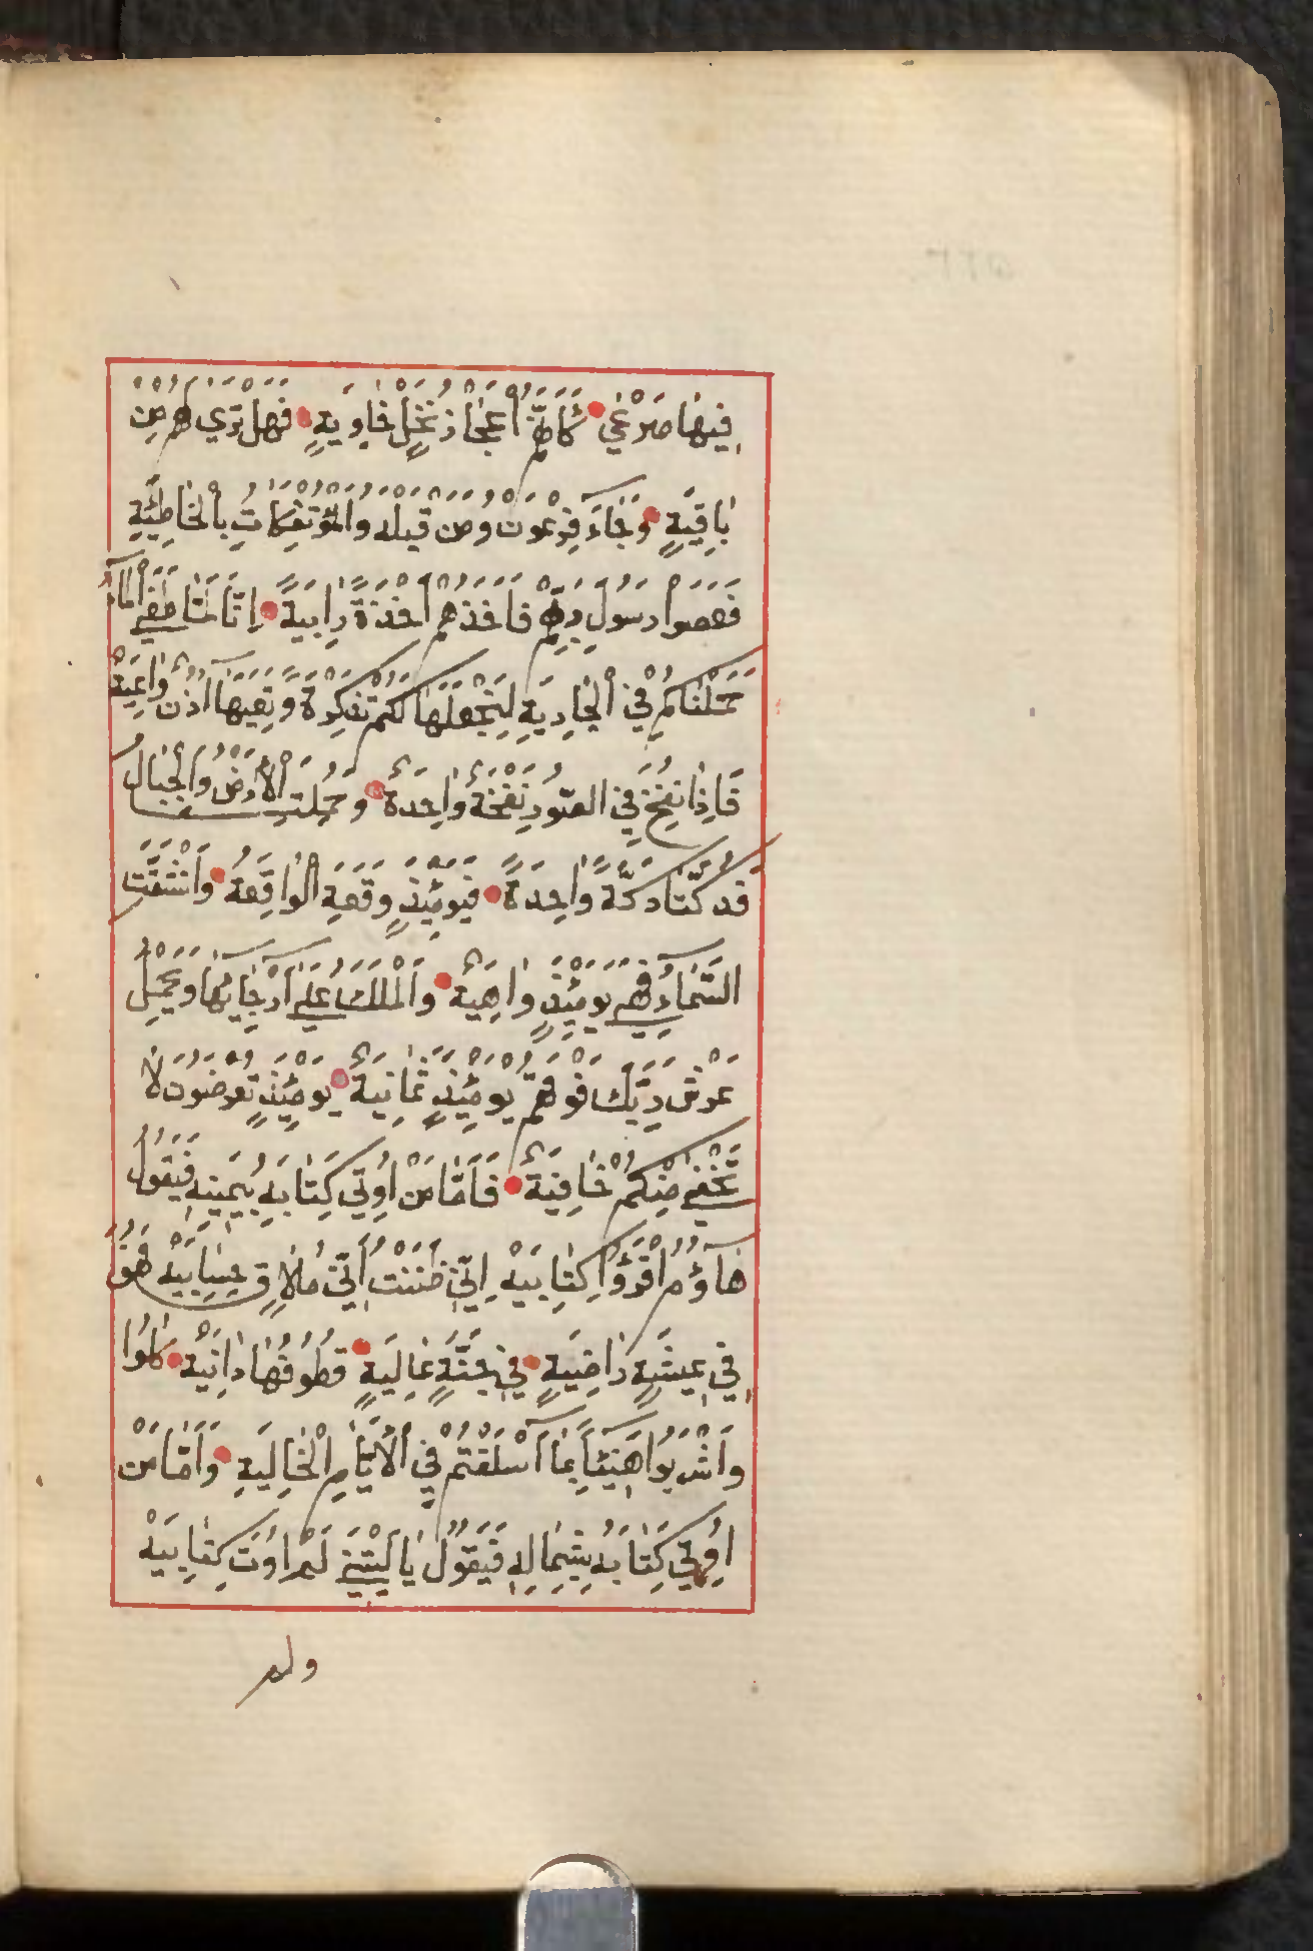 فِيهَا صَرْعٰي كَاَنَّهُمْ اَعْجَازُ نَخْلٍ خَاوِيَةٍ فَهَلْ تَرٰي لَهُمْ مِنْ
بَاقِيَةٍ وَجَآءَ فِرْعَوْنُ وَمَنْ قَبْلَهُ وَالْمُؤْتَفِكَاتُ بِالْخَاطِئَةِ
فَعَصَوْا رَسُولَ رَبِّهِمْ فَاَخَذَهُمْ اَخْذَةً رَابِيَةً اِنَّا لَمَّا طَغَي الْمَآءُ
حَمَلْنَاكُمْ فِي الْجَارِيَةِ لِنَجْعَلَهَا لَكُمْ تَذْكِرَةً وَتَعِيَهَآ اُذُنٌ وَاعِيَةٌ
فَاِذَا نُفِخَ فِي الصُّورِ نَفْخَةٌ وَاحِدَةٌ وَحُمِلَتِ الْاَرْضُ وَالْجِبَالُ
فَدُكَّتَا دَكَّةً وَاحِدَةً فَيَوْمَئِذٍ وَقَعَةِ الْوَاقِعَةُ وَانْشَقَّتِ
السَّمَآءُ فَهِيَ يَوْمَئِذٍ وَاهِيَةٌ وَالْمَلَكُ عَلٰي اَرْجَآئِهَا وَيَحْمِلُ
عَرْشَ رَبِّكَ فَوْقَهُمْ يَوْمَئِذٍ ثَمَانِيَةٌ يَوْمَئِذٍ تُعْرَضُونَ لَا
تَخْفٰي مِنْكُمْ خَافِيَةٌ فَاَمَّا مَنْ اُوتِيَ كِتَابَهُ بِيَمِينِهِ فَيَقُولُ
هَآؤُمُ اقْرَؤُا كِتَابِيَهْ اِنِّي ظَنَنْتُ اَنِّي مُلَاقٍ حِسَابِيَهْ فَهُوَ
فِي عِيشَةٍ رَاضِيَةٍ فِي جَنَّةٍ عَالِيَةٍ قُطُوفُهَا دَانِيَةٌ كُلُوا
وَاشْرَبُوا هَنِيئًا بِمَآ اَسْلَفْتُمْ فِي الْاَيَّامِ الْخَالِيَةِ وَاَمَّا مَنْ
اُوتِيَ كِتَابَهُ بِشِمَالِهِ فَيَقُولُ يَا لَيْتَنِي لَمْ اُوتَ كِتَابِيَهْ
ولم